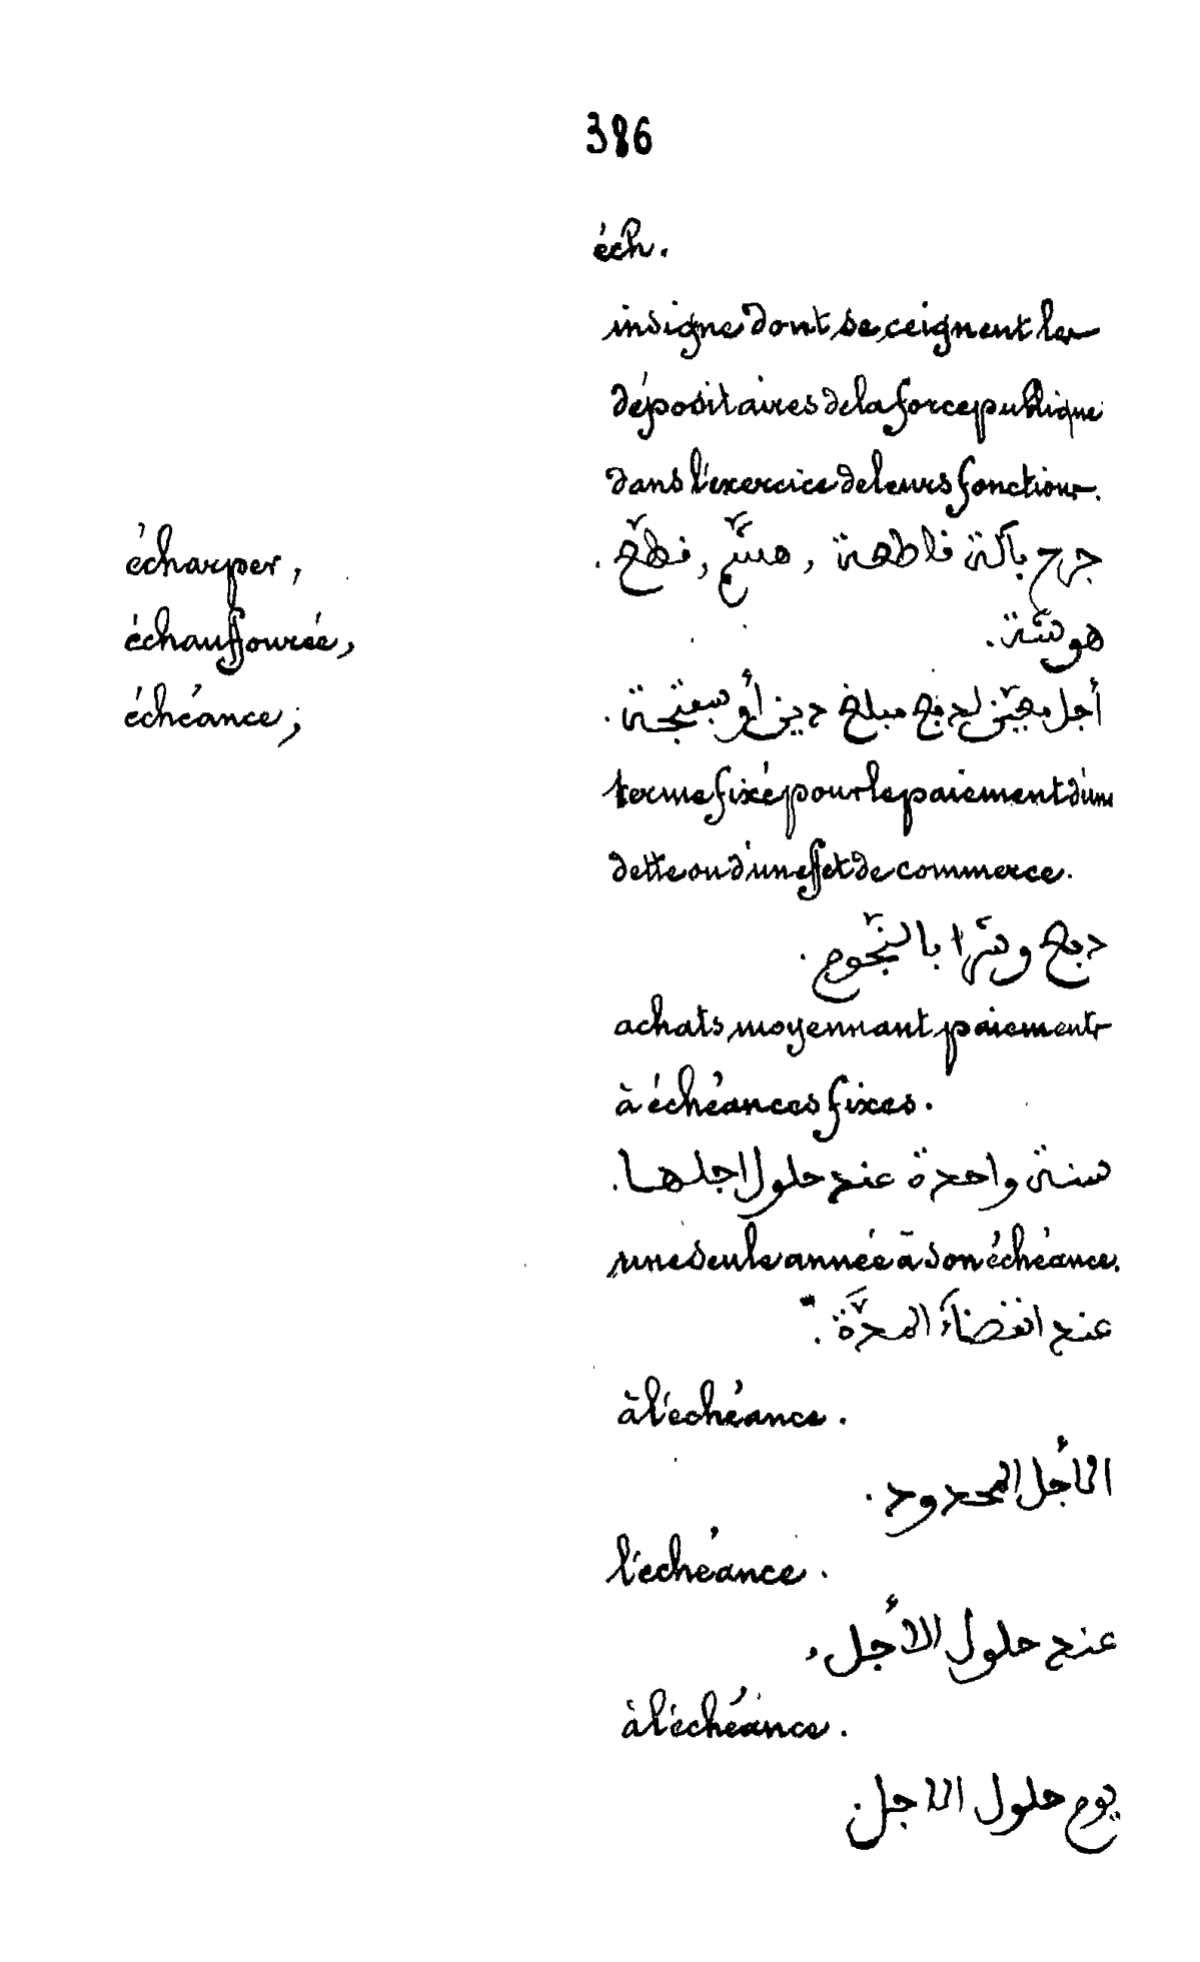 386
éch.
insigne dont se ceignent les
dépositaires de la force publique
dans l'exercice de leurs fonctions.
écharper, جرح بآلة قاطعة , هشّم , قطّع .
échauffourée, هوشة .
échéance; أجل معيّن لدفع مبلغ دين أو سفتجة .
terme fixé pour le paiement d'une
dette ou d'un effet de commerce.
دفع وشرا بالنّجوم .
achats moyennant paiements
à échéances fixes.
سنة واحدة عند حلول اجلها .
une seule année à son échéance.
عند انقضاء المدّة .
à l'échéance.
الأجل المحدود .
l'échéance.
عند حلول الأجل .
à l'échéance.
يوم حلول الاجل